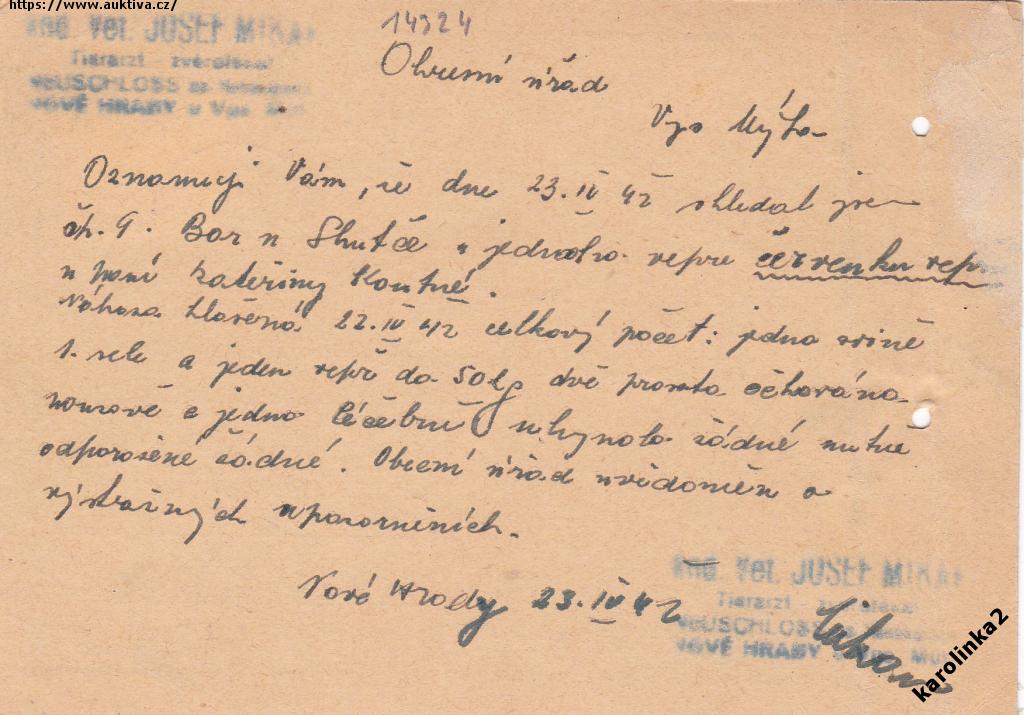 https://www.auktiva.cz/
Ing. Vet. JOSEF
Tierarzt - zvěrolékař
NEUSCHLOSS
NOVÉ HRADY u Vys.
14324
Obecní úřad
Vys Mýto
Oznamuji Vám, že dne 23. IV 42 shledal jsem
čp. 9. Bor u Skutče u jednoho vepře červenku
u paní Kateřiny Koutné.
Nákaza hlášená 22. IV 42 celkový počet: jedna svině
1. sele a jeden vepř do 50 kg dvě prasata očkována
nouzově a jedno léčebně uhynulo žádné nutně
odporažené žádné. Obecní úřad uvědoměn o
výstražných upozorněních.
Nové Hrady 23. IV 42
Ing. Vet. JOSEF
Tierarzt - zvěrolékař
NEUSCHLOSS
NOVÉ HRADY
karolinka2